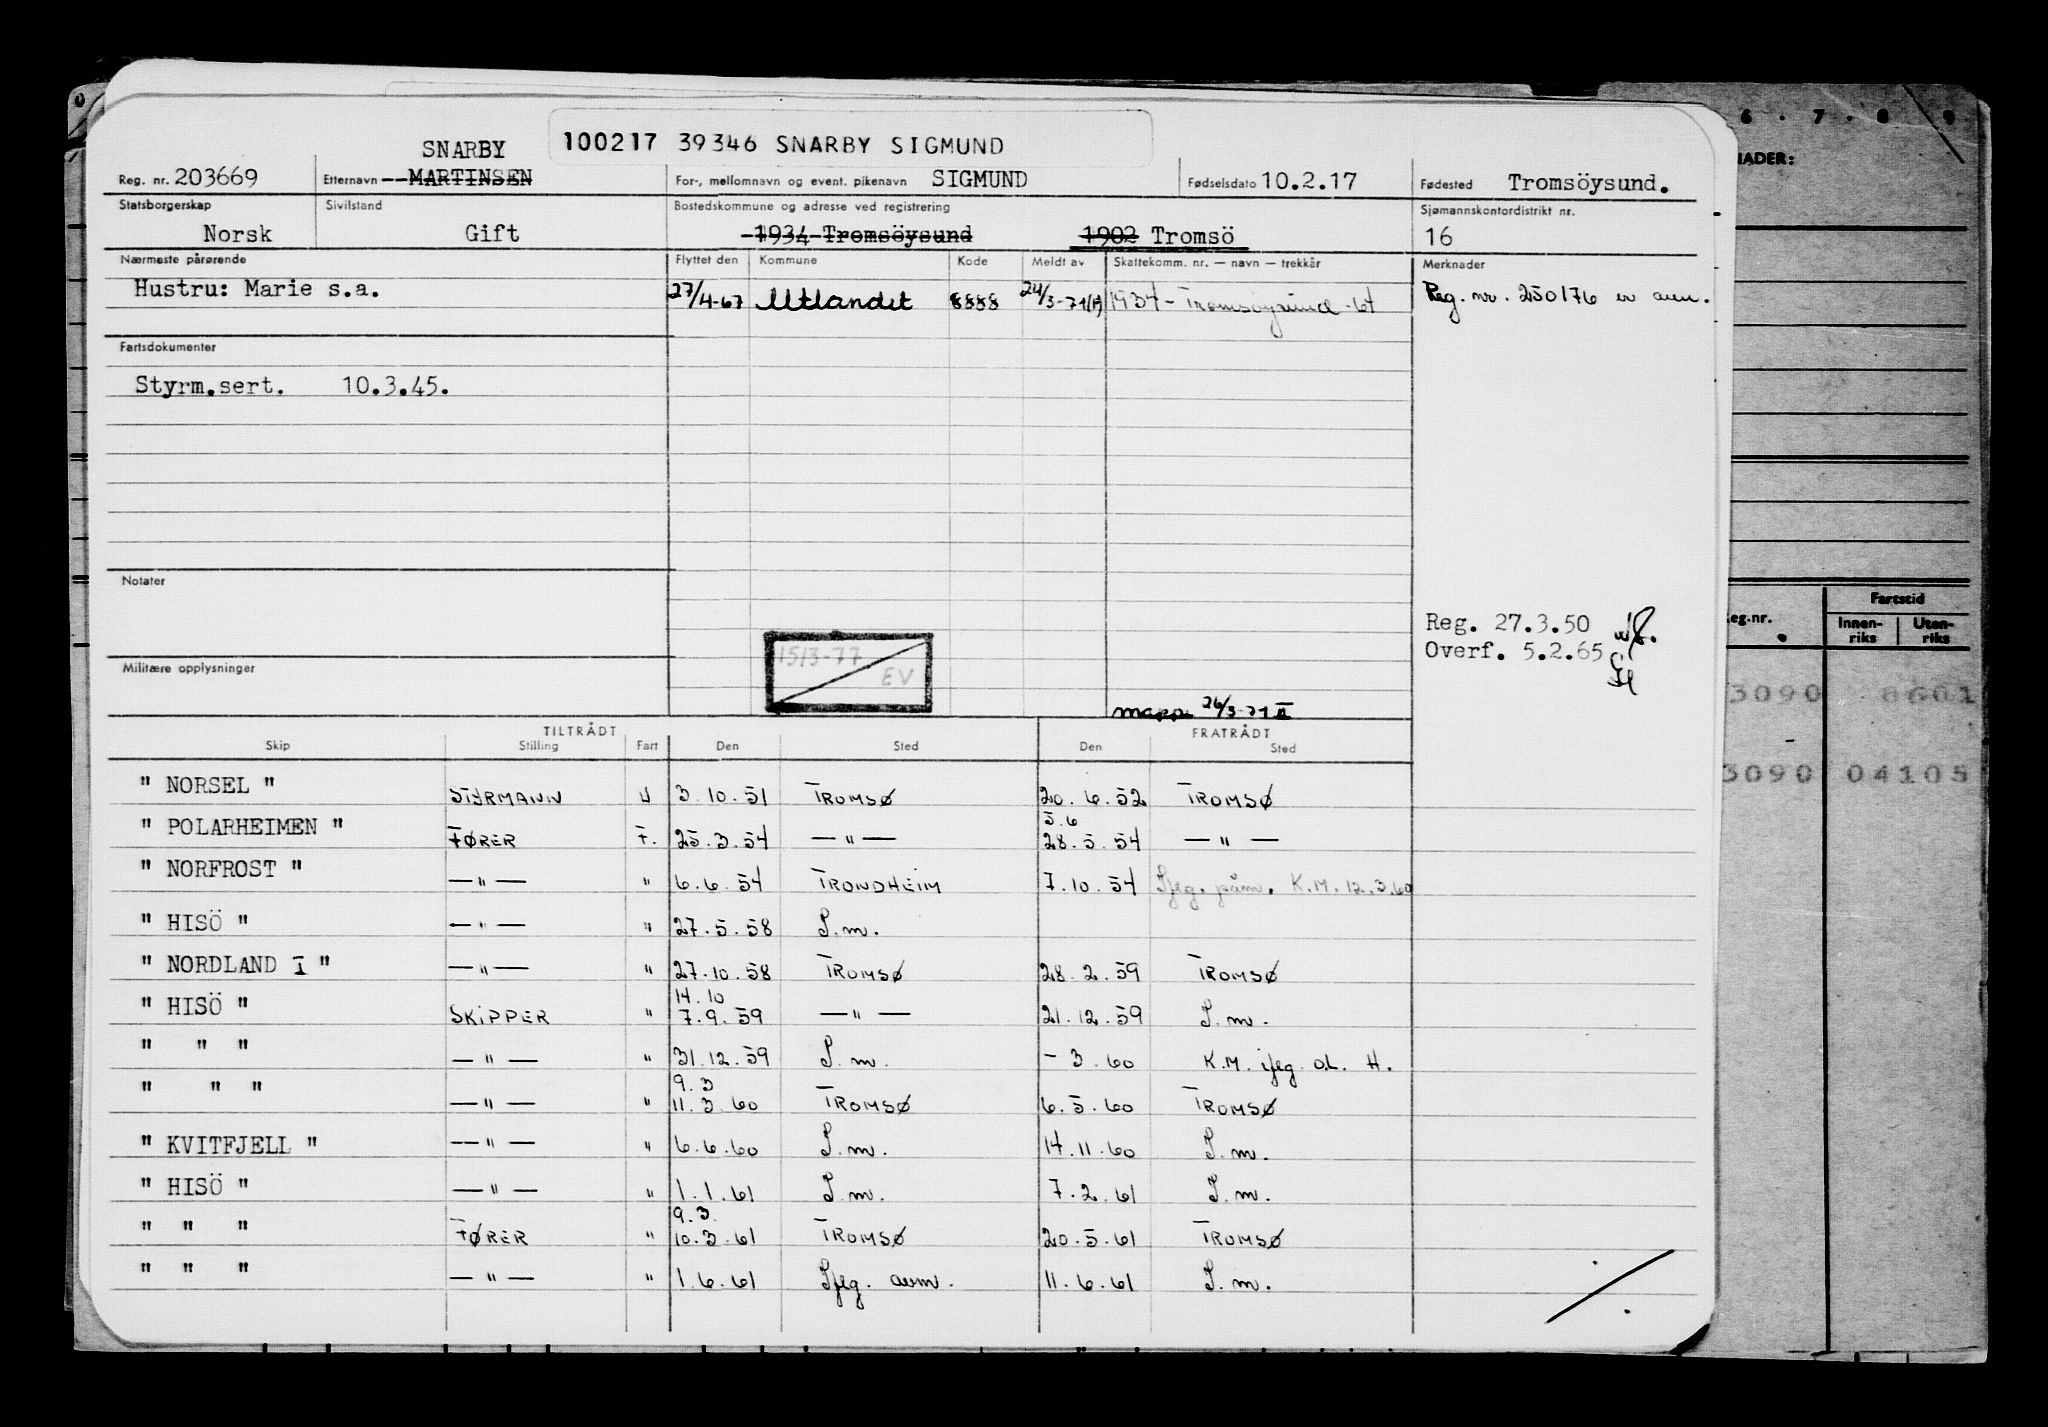 100217 39346 SNARBY SIGMUND
SNARBY
Reg. nr. 203669 Etternavn MARTINSEN For-, mellomnavn og event. pikenavn SIGMUND Fødselsdato 10.2.17 Fødested Tromsöysund.
Statsborgerskap Sivilstand Bostedskommune og adresse ved registrering Sjømannskontordistrikt nr.
Norsk Gift 1934 Tromsöysund 1902 Tromsö 16
Nærmeste pårørende Flyttet den Kommune Kode Meldt av Skattekomm. nr. — navn — trekkår Merknader
Hustru: Marie s.a. 27/4-67 Utlandet 8888 24/3-71 1934 - Tromsöysund -64 Reg. nr. 250176 er ann.
Fartsdokumenter
Styrm.sert. 10.3.45.
Notater
Reg. 27.3.50
Overf. 5.2.65
15/3-77
EV
Militære opplysninger
mappe 26/3-71 II
TILTRÅDT FRATRÅDT
Skip Stilling Fart Den Sted Den Sted
" NORSEL " STYRMANN U 3.10.51 TROMSØ 20.6.52 TROMSØ
5.6
" POLARHEIMEN " FØRER F. 25.3.54 — " — 28.5.54 — " —
" NORFROST " — " — " 6.6.54 TRONDHEIM 7.10.54 Sfg. påm. K.M. 12.3.60
" HISÖ " — " — " 27.5.58 S.m.
" NORDLAND I " — " — " 27.10.58 TROMSØ 28.2.59 TROMSØ
14.10
" HISÖ " SKIPPER " 7.9.59 — " — 21.12.59 S.m.
" " " — " — " 31.12.59 S.m. - 3.60 K.M. iflg. o.l. H.
9.3
" " " — " — " 11.3.60 TROMSØ 6.5.60 TROMSØ
" KVITFJELL " — " — " 6.6.60 S.m. 14.11.60 S.m.
" HISÖ " — " — " 1.1.61 S.m. 7.2.61 S.m.
9.3.
" " " FØRER " 10.3.61 TROMSØ 20.5.61 TROMSØ
" " " — " — " 1.6.61 Sfg. avm. 11.6.61 S.m.
6 . 7 . 8 . 9
NADER:
eg.nr. Fartstid
Innen-riks Uten-riks
3090 0601
3090 04105